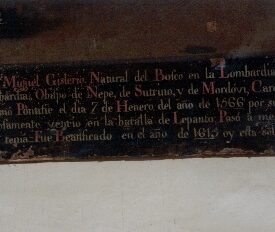 Miguel Gislerio. Natural del Bosco en la Lombardia
Obispo de Nepe, de Sutrino, y de Mordovi, Car
Pontifie el dia 7 de Henero del año de 1566 por su
vencio en la batalla de Lepanto. Pasó a me
Fue Beatificado en el año de 1615 oy esta